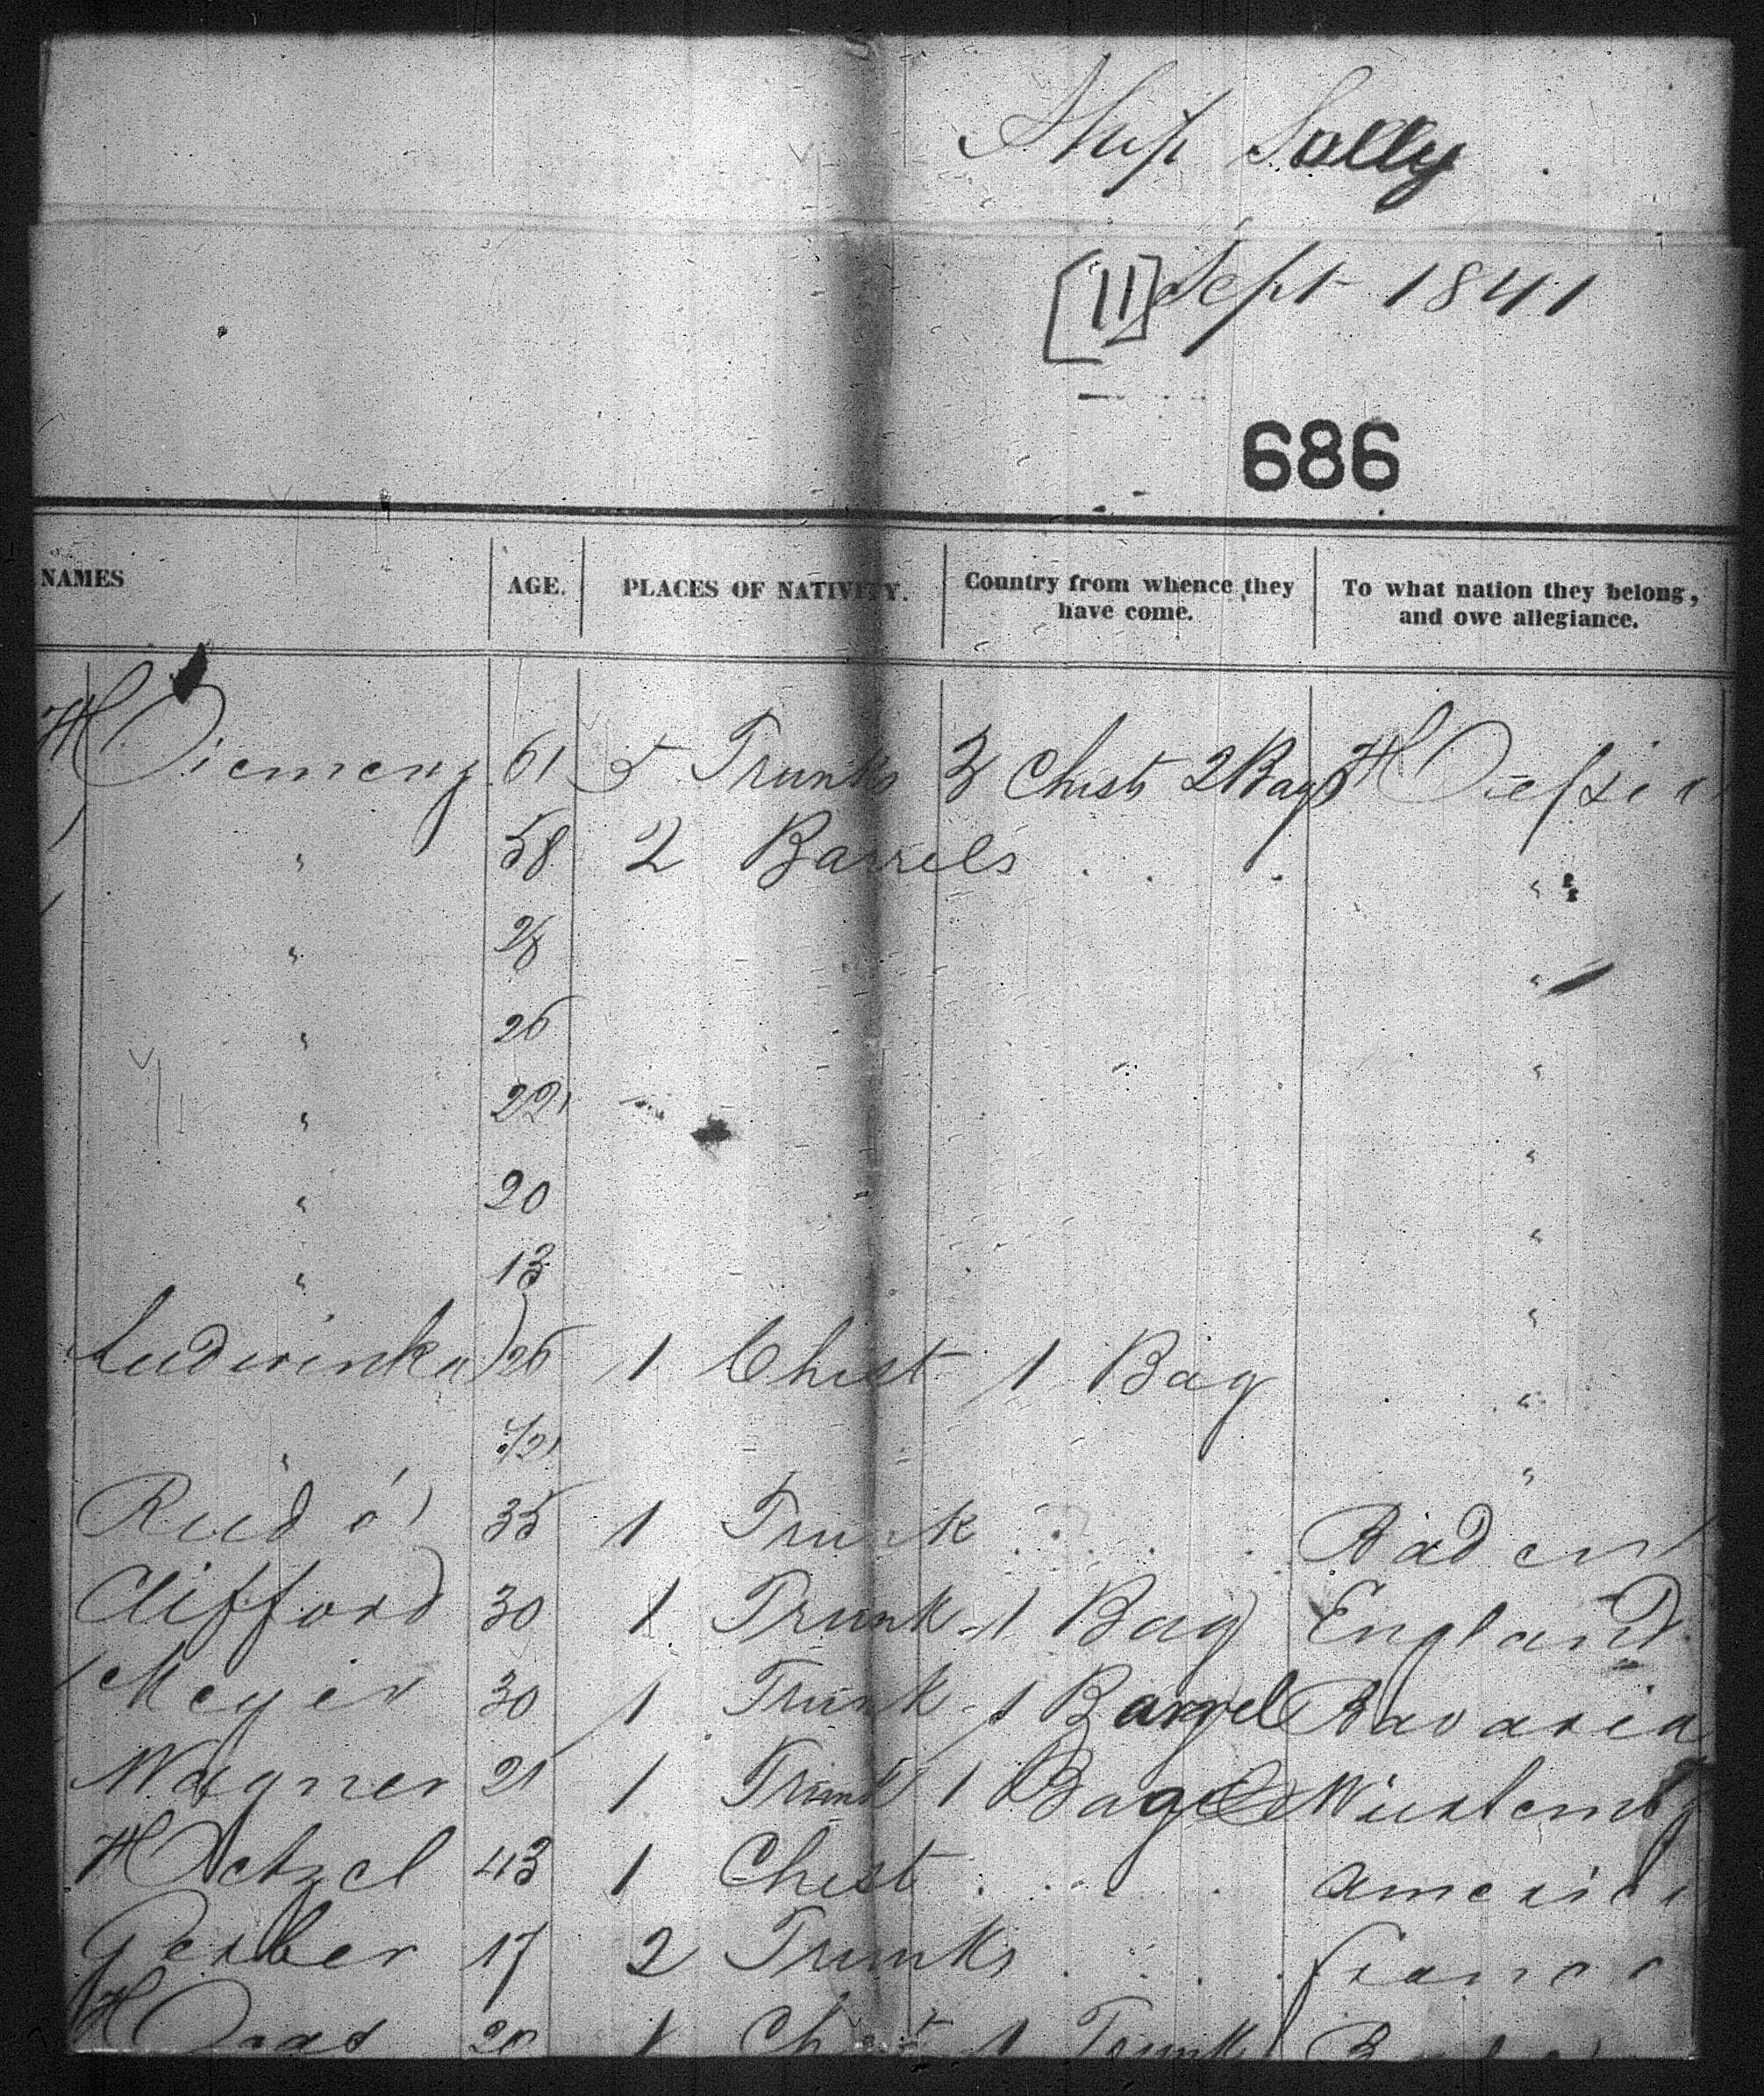 Ship Sally
[11] Sept 1841
686
NAMES AGE. PLACES OF NATIVITY. Country from whence they have come. To what nation they belong, and owe allegiance.
Hiemenz 61 5 Trunks 3 Chists 2 Bags Hessia
" 58 2 Barrels . . . "
" 28 "
" 26 "
" 22 "
" 20 "
" 13 "
26 1 Chist 1 Bag "
" "
35 1 Trunk . . . . Baden
Clifford 30 1 Trunk 1 Bag England
Meyer 30 1 Trunk 1 Barrel Bavaria
Wagner 21 1 Trunk 1 Würtemb
Hetzel 43 1 Chist . . . . America
Gerber 17 2 Trunks . . . . France
Haas 20 1 Chist 1 Trunk